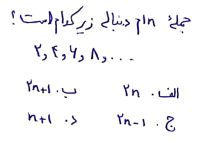 جملهٔ nام دنباله زیر کدام است؟
۲,۴,۶,۸,...
الف. ۲n ب. ۲n+۱
ج. ۲n-۱ د. n+۱